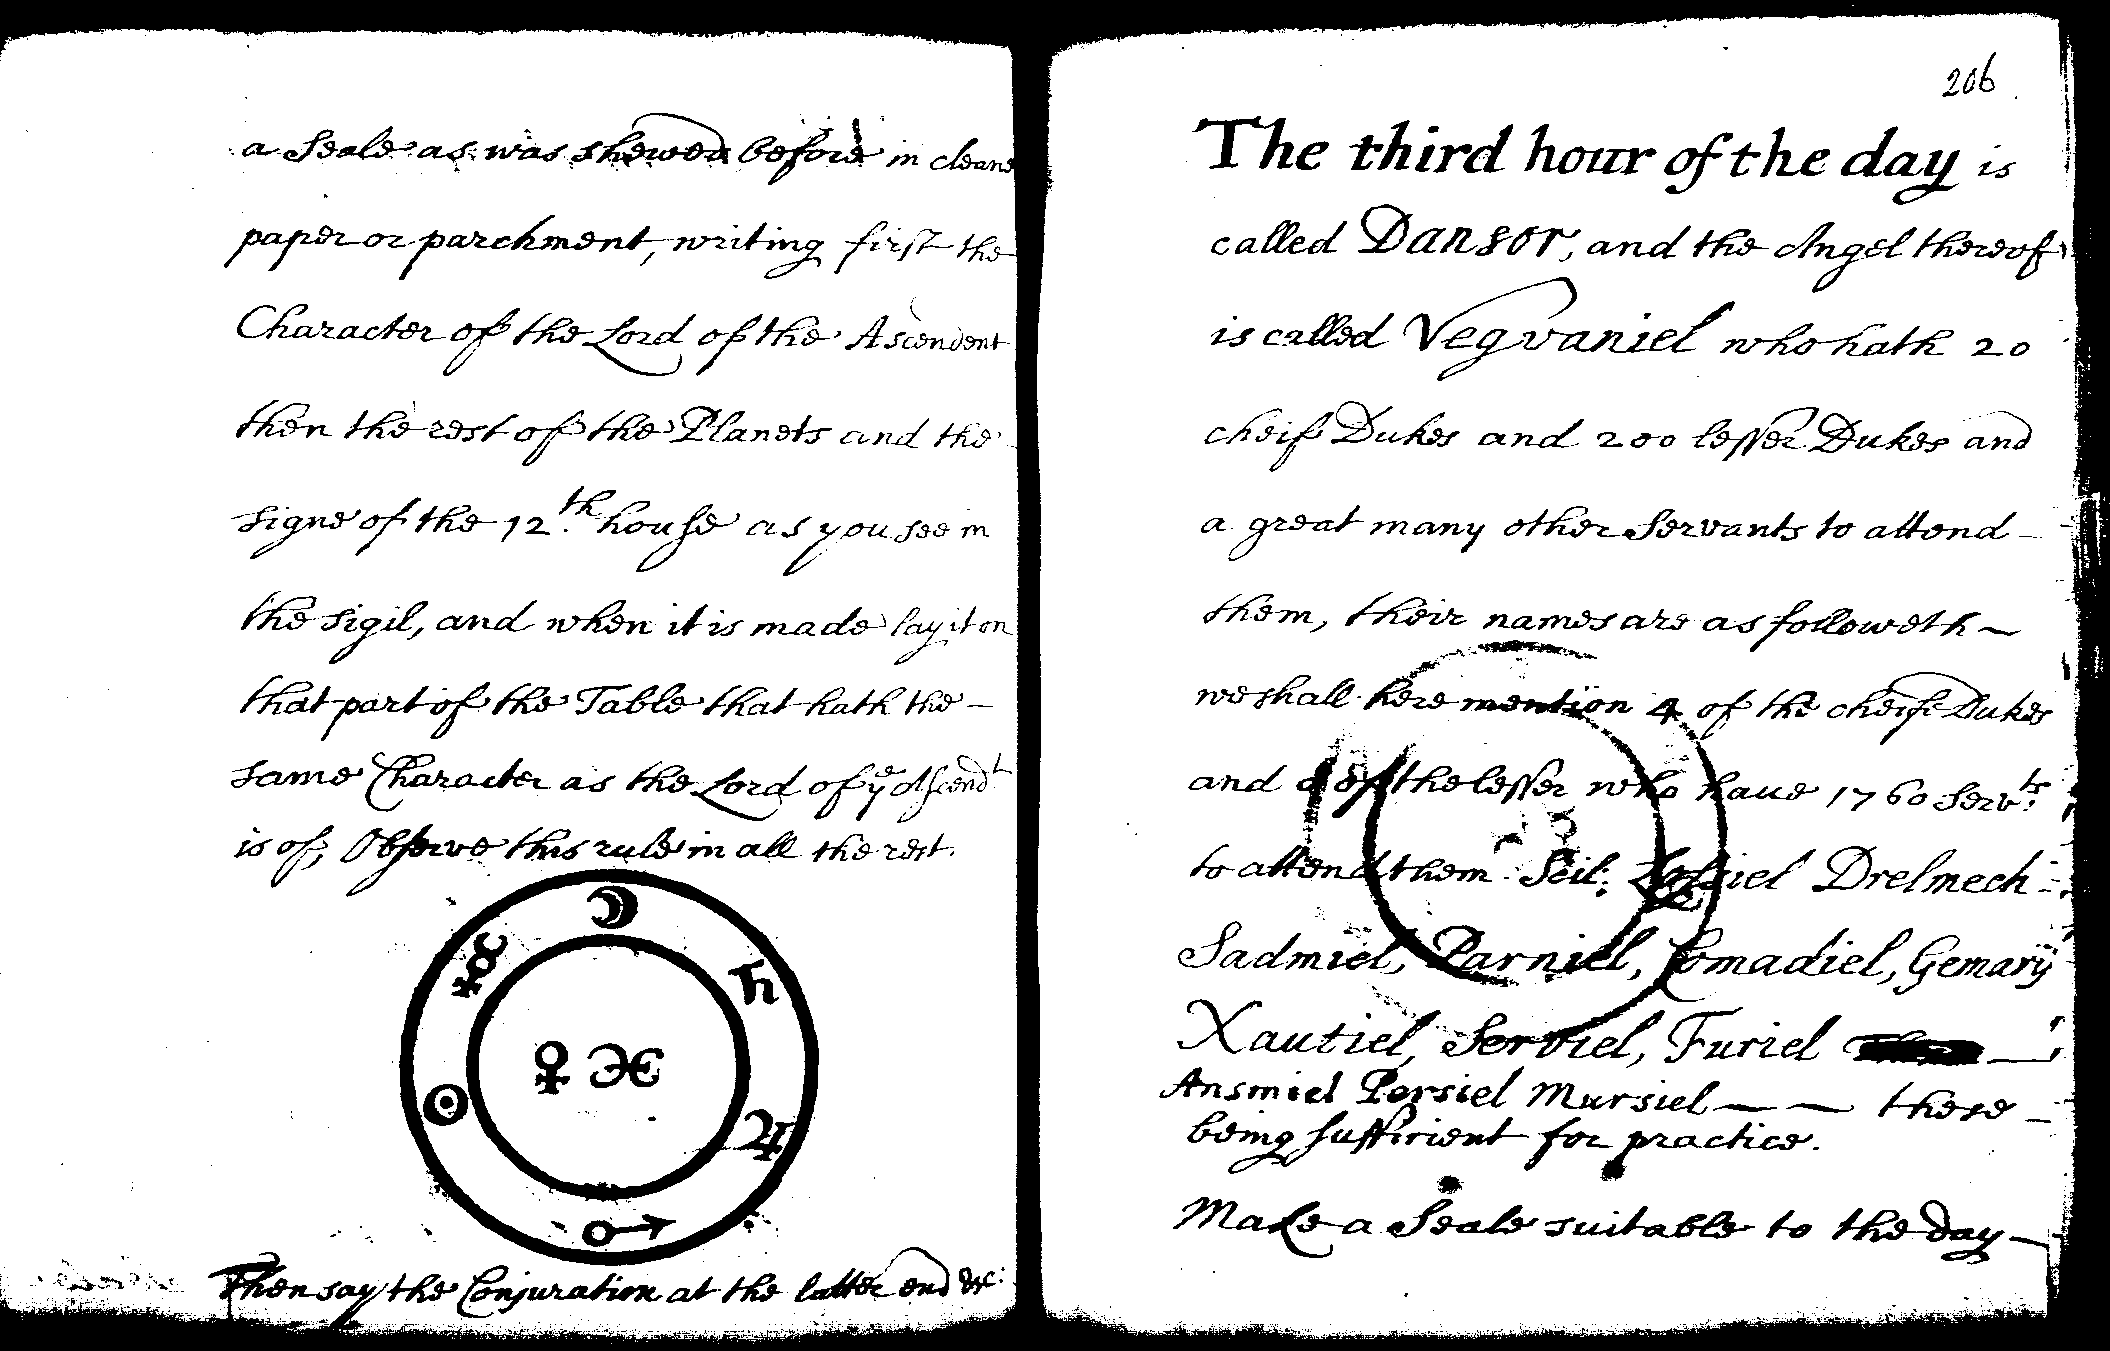 a Seale as was shewed before in cleane
paper or parchment, writing first the
Character of the Lord of the Ascendent
then the rest of the Planets and the
signe of the 12.th house as you see in
the sigil, and when it is made lay it on
that part of the Table that hath the –
same Character as the Lord of ye Ascendt
is of, Observe this rule in all the rest.
☽
☿
♄
♀
☉
♃
♂
Then say the Conjuration at the latter end &c:
206
The third hour of the day is
called Dansor, and the Angel thereof
is called Vegvaniel who hath 20
cheif Dukes and 200 lesser Dukes and
a great many other Servants to attend –
them, their names are as followeth ~
we shall here mention 4 of the cheife Dukes
and of the lesser who haue 1760 Servts:
to attend them Scil: Drelmech
Sadmiel, Parniel, Comadiel, Gemarij
Xautiel, Serviel, Furiel —
Ansmiel Persiel Mursiel — — these –
being sufficient for practice.
Make a Seale suitable to the day —